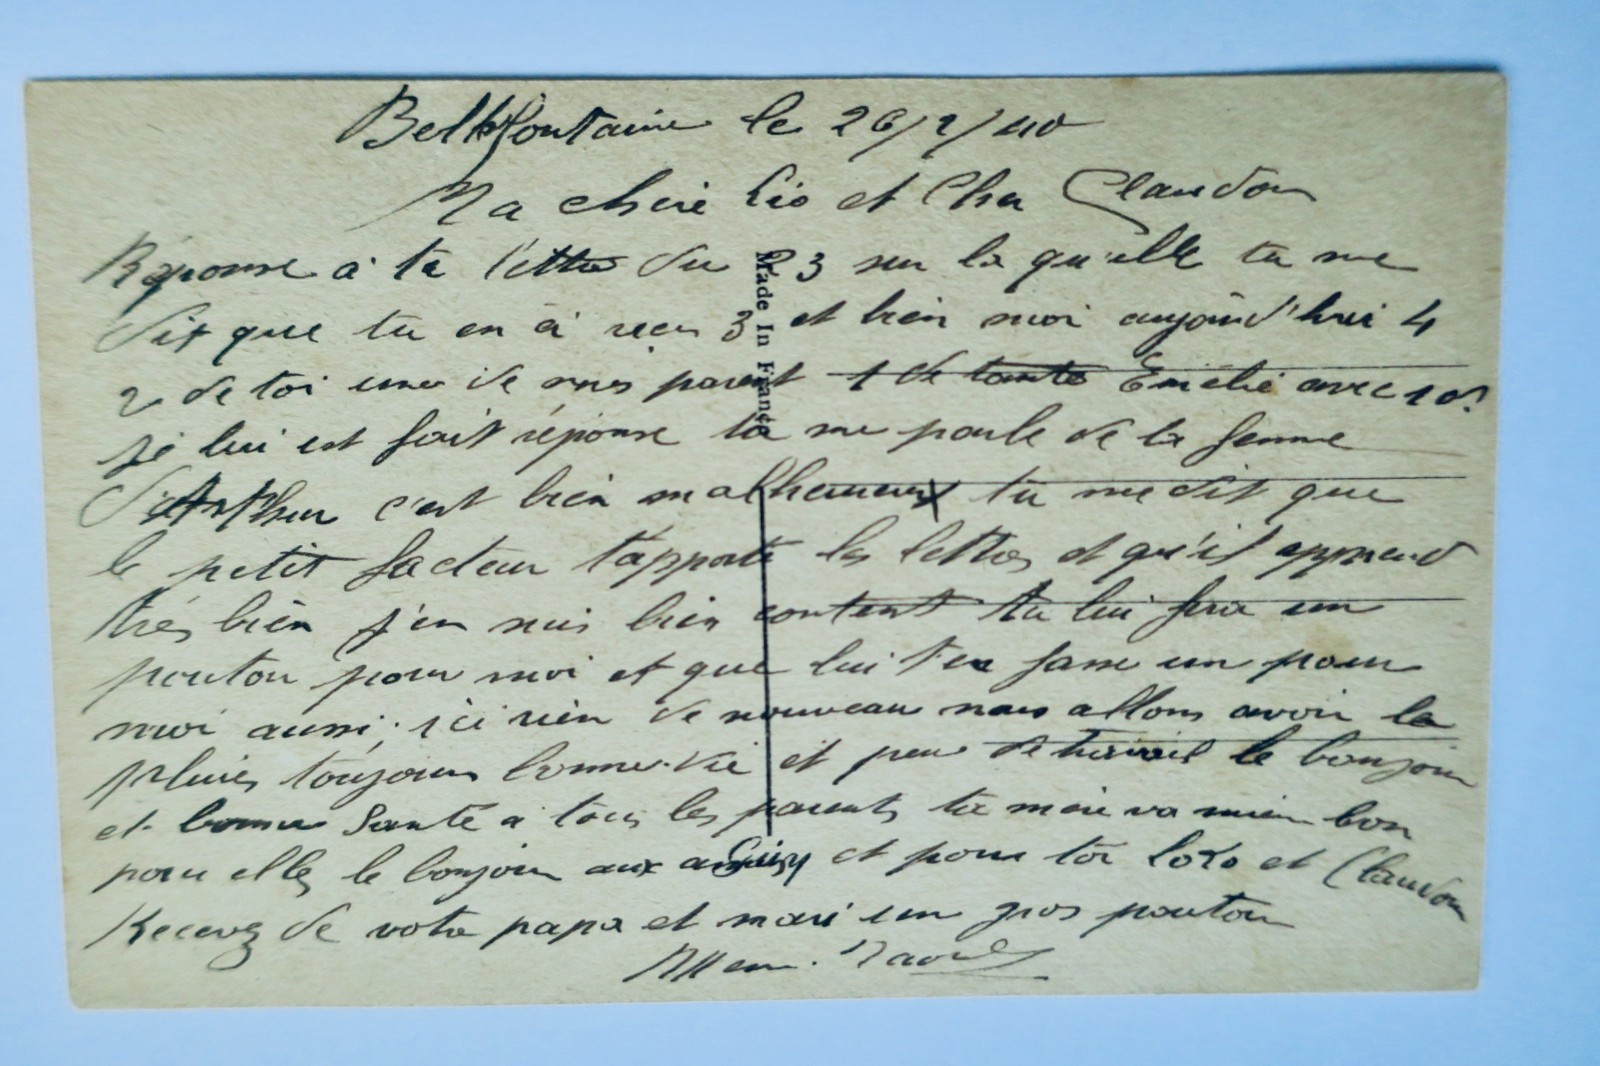 Bellefontaine le 26/2/40
Ma chère Lio et Cher Claudou
Réponse à ta lettre du 23 sur la qu'elle tu me
dit que tu en à recu 3 et bien moi aujourd'hui 4
2 de toi une de mes parent 1 de tante Emélie avec 10f
je lui est fait réponse tu me parle de la femme
d'Arthur c'est bien malheureux tu me dit que
le petit facteur t'apporte les lettres et qu'il apprend
très bien j'en suis bien content tu lui fera un
pouton pour moi et que lui t'en fasse un pour
moi aussi, ici rien de nouveau nous allons avoir la
pluie, toujours bonne vie et peu de travail le bonjour
et bonne Santé a tous les parents ta mère va mieu bon
pour elle, le bonjour aux et pour toi Lolo et Claudou
Recevez de votre papa et mari un gros pouton
Raoul
Made In France